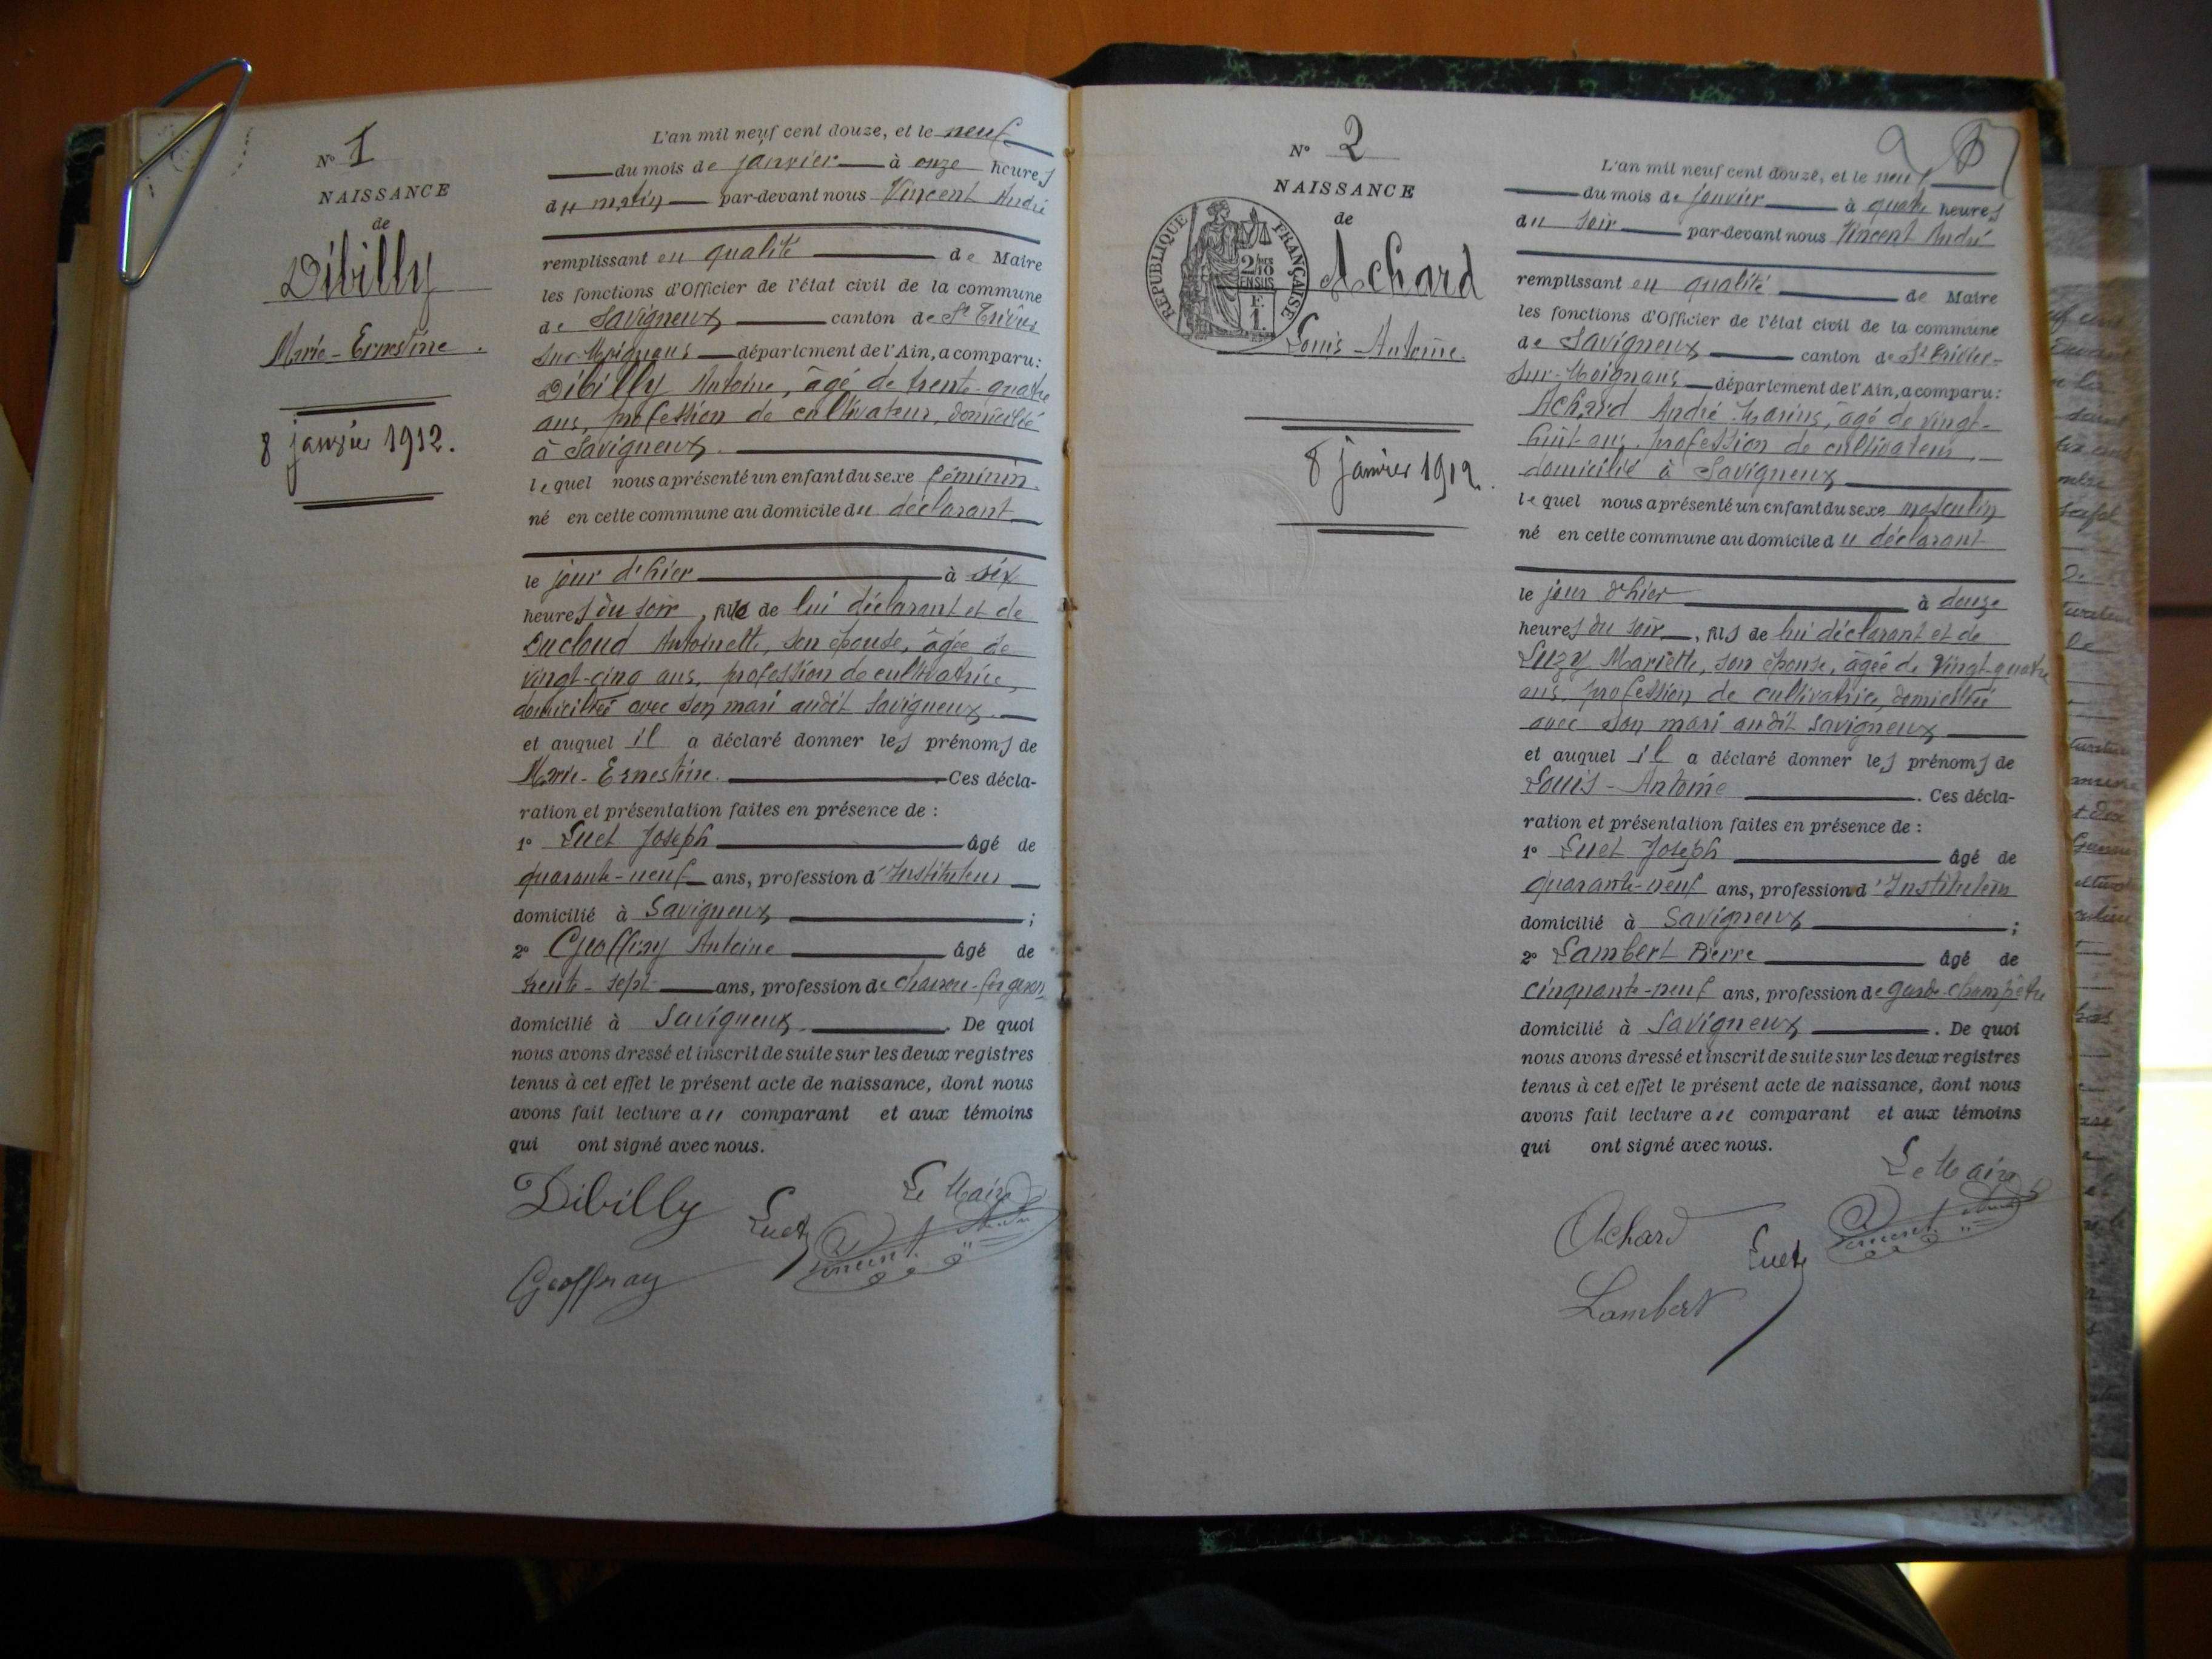 N° 1
NAISSANCE
de
Dibilly
Marie-Ernestine.
8 janvier 1912.
L'an mil neuf cent douze, et le neuf
du mois de janvier à onze heures
du matin par-devant nous Vincent André
remplissant en qualité de Maire
les fonctions d'Officier de l'état civil de la commune
de Savigneux canton de St Trivier
sur-Moignans département de l'Ain, a comparu:
Dibilly Antoine, âgé de trente-quatre
ans, profession de cultivateur, domicilié
à Savigneux.
lequel nous a présenté un enfant du sexe féminin
né en cette commune au domicile du déclarant
le jour d'hier à six
heures du soir, fille de lui déclarant et de
Ducloud Antoinette, son épouse, âgée de
vingt-cinq ans, profession de cultivatrice,
domiciliée avec son mari audit Savigneux.
et auquel il a déclaré donner les prénoms de
Marie-Ernestine. Ces décla-
ration et présentation faites en présence de :
1° Luet Joseph âgé de
quarante-neuf ans, profession d'Instituteur
domicilié à Savigneux ;
2° Geoffray Antoine âgé de
trente-sept ans, profession de charron-forgeron
domicilié à Savigneux. De quoi
nous avons dressé et inscrit de suite sur les deux registres
tenus à cet effet le présent acte de naissance, dont nous
avons fait lecture au comparant et aux témoins
qui ont signé avec nous.
Dibilly Luet Le Maire
Geoffray Vincent André
N° 2
NAISSANCE
de
Achard
Louis Antoine.
8 janvier 1912.
RÉPUBLIQUE FRANÇAISE
2/10
EN SUS
F.
1.
L'an mil neuf cent douze, et le neuf
du mois de janvier à quatre heures
du soir par-devant nous Vincent André
remplissant en qualité de Maire
les fonctions d'Officier de l'état civil de la commune
de Savigneux canton de St Trivier-
sur-Moignans département de l'Ain, a comparu:
Achard André Marius, âgé de vingt-
huit ans, profession de cultivateur,
domicilié à Savigneux
lequel nous a présenté un enfant du sexe masculin
né en cette commune au domicile du déclarant
le jour d'hier à douze
heures du soir, fils de lui déclarant et de
Luzy Mariette, son épouse, âgée de vingt-quatre
ans, profession de cultivatrice, domiciliée
avec son mari audit Savigneux
et auquel il a déclaré donner les prénoms de
Louis-Antoine. Ces décla-
ration et présentation faites en présence de :
1° Luet Joseph âgé de
quarante-neuf ans, profession d'Instituteur
domicilié à Savigneux ;
2° Lambert Pierre âgé de
cinquante-neuf ans, profession de garde-champêtre
domicilié à Savigneux. De quoi
nous avons dressé et inscrit de suite sur les deux registres
tenus à cet effet le présent acte de naissance, dont nous
avons fait lecture au comparant et aux témoins
qui ont signé avec nous.
Le Maire
Achard Luet Vincent André
Lambert